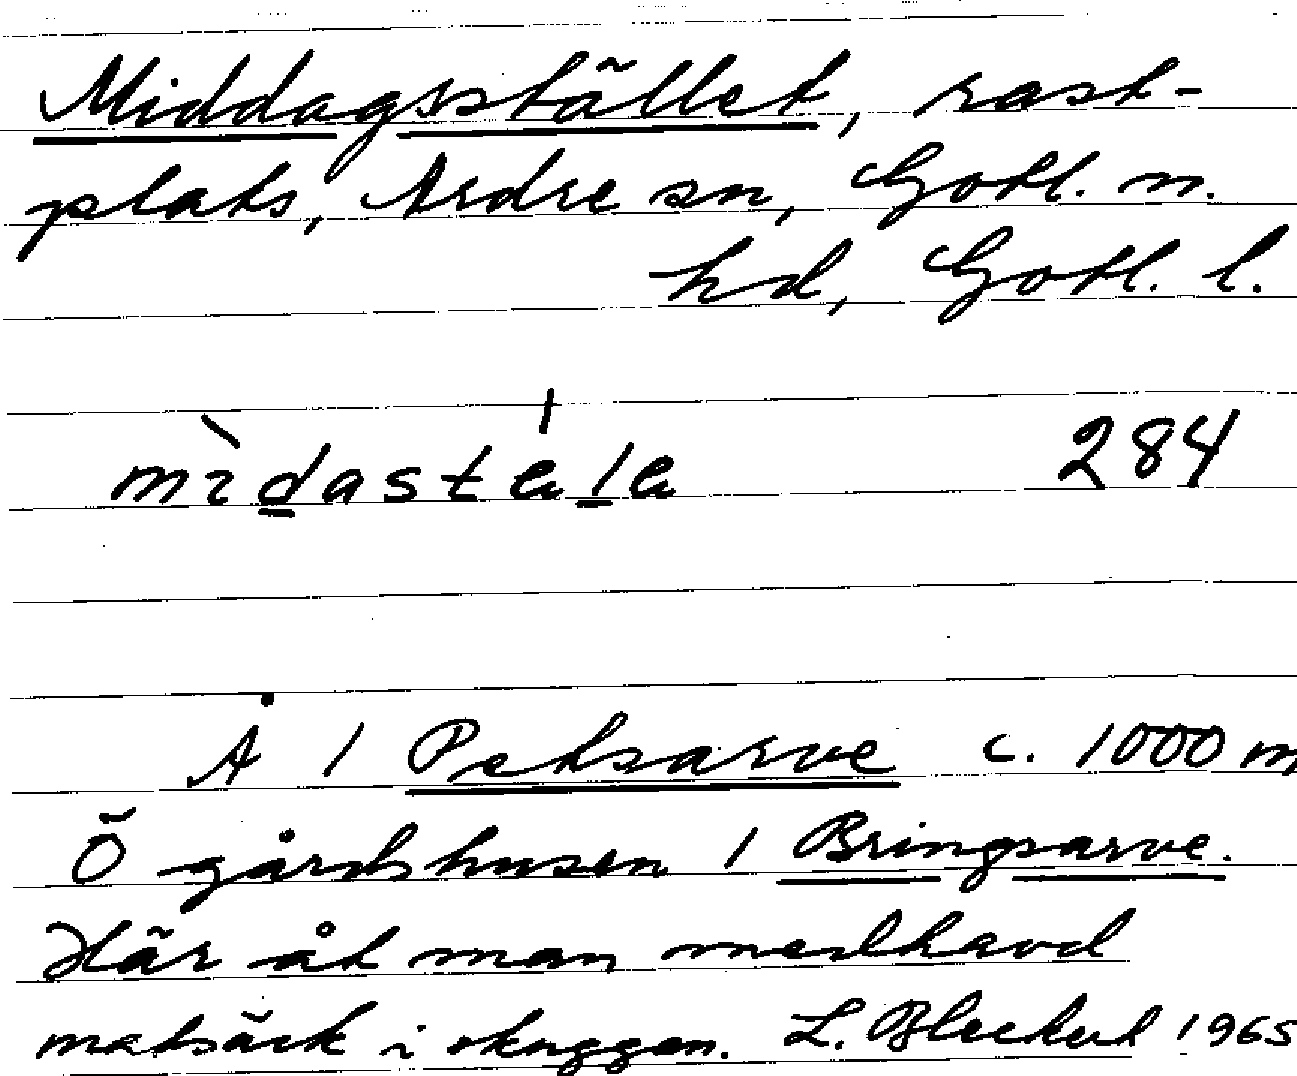 Middagsstället, rast-
plats, Ardre sn, Gotl. n.
hd, Gotl. l.
mìdastella 284
Å / Petsarve c. 1000 m
Ö gårdshusen / Bringsarve.
Här åt man medhavd
matsäck i skuggan. L. Bleckert 1965